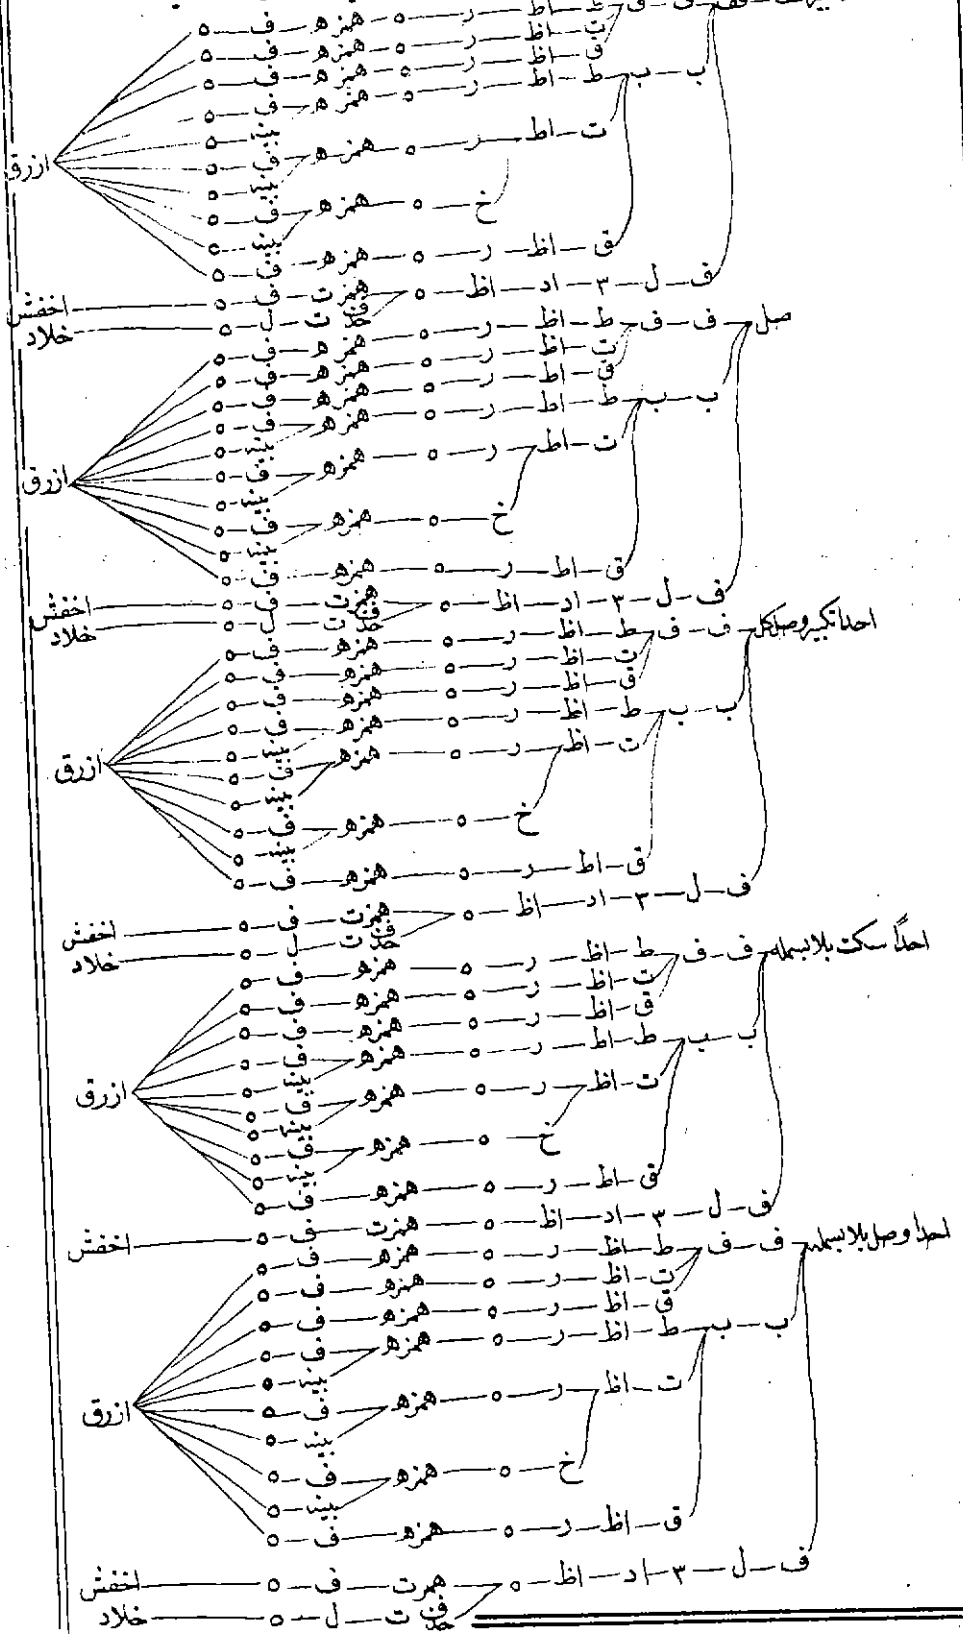 ط — اظ — ر — ه — همزه — ف — ه
ت — اظ — ر — ه — همزه — ف — ه
ق — اظ — ر — ه — همزه — ف — ه
ب — ب — ط — اظ — ر — ه — همزه — ف — ه
بينه — ه
ت — اظ — ر — ه — همزه — ف — ه
ازرق
بينه — ه
خ — ه — همزه — ف — ه
بينه — ه
ق — اظ — ر — ه — همزه — ف — ه
ف — ل — ٣ — اد — اظ — ه — همزت — ف — ه — اخفش
حذف ت — ل — ه — خلاد
صل — ف — ف — ط — اظ — ر — ه — همزه — ف — ه
ت — اظ — ر — ه — همزه — ف — ه
ق — اظ — ر — ه — همزه — ف — ه
ب — ب — ط — اظ — ر — ه — همزه — ف — ه
بينه — ه
ت — اظ — ر — ه — همزه — ف — ه
ازرق
بينه — ه
خ — ه — همزه — ف — ه
بينه — ه
ق — اظ — ر — ه — همزه — ف — ه
ف — ل — ٣ — اد — اظ — ه — همزت — ف — ه — اخفش
حذف ت — ل — ه — خلاد
احداتكبير وصل كل — ف — ف — ط — اظ — ر — ه — همزه — ف — ه
ت — اظ — ر — ه — همزه — ف — ه
ق — اظ — ر — ه — همزه — ف — ه
ب — ب — ط — اظ — ر — ه — همزه — ف — ه
بينه — ه
ت — اظ — ر — ه — همزه — ف — ه
ازرق
بينه — ه
خ — ه — همزه — ف — ه
بينه — ه
ق — اظ — ر — ه — همزه — ف — ه
ف — ل — ٣ — اد — اظ — ه — همزت — ف — ه — اخفش
حذف ت — ل — ه — خلاد
احدًا سكت بلا بسمله — ف — ف — ط — اظ — ر — ه — همزه — ف — ه
ت — اظ — ر — ه — همزه — ف — ه
ق — اظ — ر — ه — همزه — ف — ه
ب — ب — ط — اظ — ر — ه — همزه — ف — ه
بينه — ه
ت — اظ — ر — ه — همزه — ف — ه
ازرق
بينه — ه
خ — ه — همزه — ف — ه
بينه — ه
ق — اظ — ر — ه — همزه — ف — ه
ف — ل — ٣ — اد — اظ — ه — همزت — ف — ه — اخفش
احدا وصل بلا بسمله — ف — ف — ط — اظ — ر — ه — همزه — ف — ه
ت — اظ — ر — ه — همزه — ف — ه
ق — اظ — ر — ه — همزه — ف — ه
ب — ب — ط — اظ — ر — ه — همزه — ف — ه
بينه — ه
ت — اظ — ر — ه — همزه — ف — ه
ازرق
بينه — ه
خ — ه — همزه — ف — ه
بينه — ه
ق — اظ — ر — ه — همزه — ف — ه
ف — ل — ٣ — اد — اظ — ه — همزت — ف — ه — اخفش
حذف ت — ل — ه — خلاد